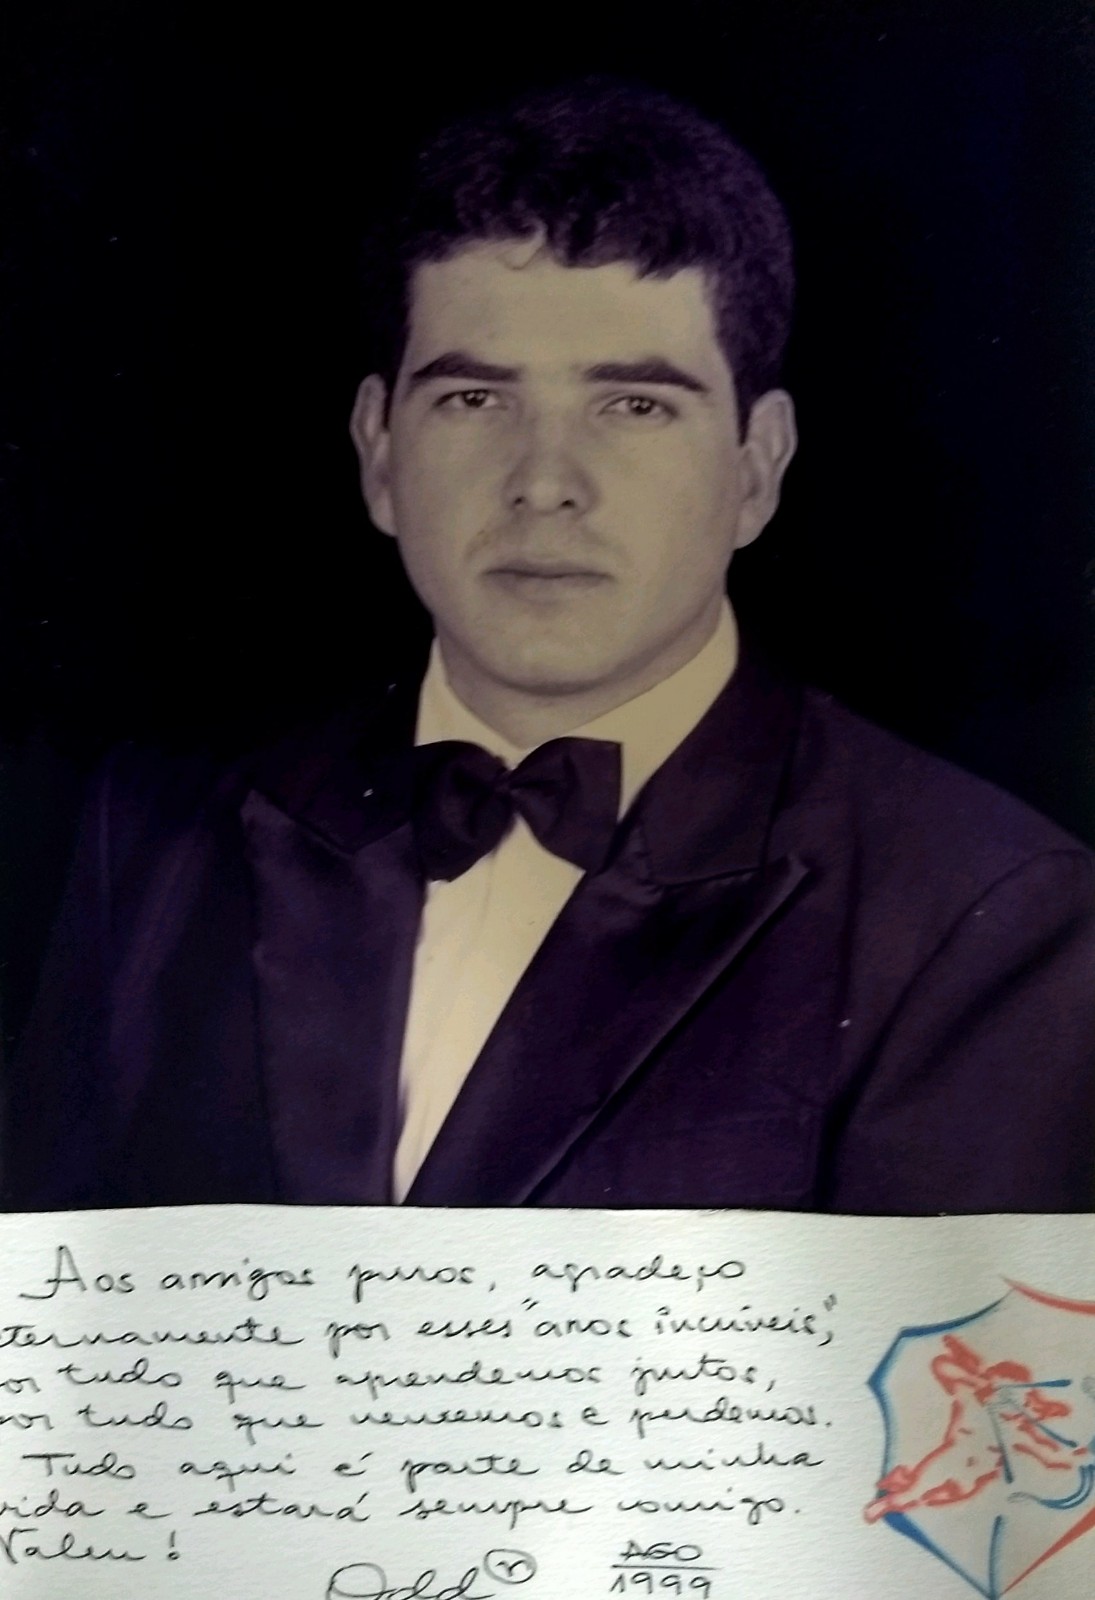 Aos amigos puros, agradeço
ternamente por esses "anos incríveis,"
or tudo que aprendemos juntos,
por tudo que vencemos e perdemos.
Tudo aqui é parte de minha
vida e estará sempre comigo.
Valeu!
AGO
1999